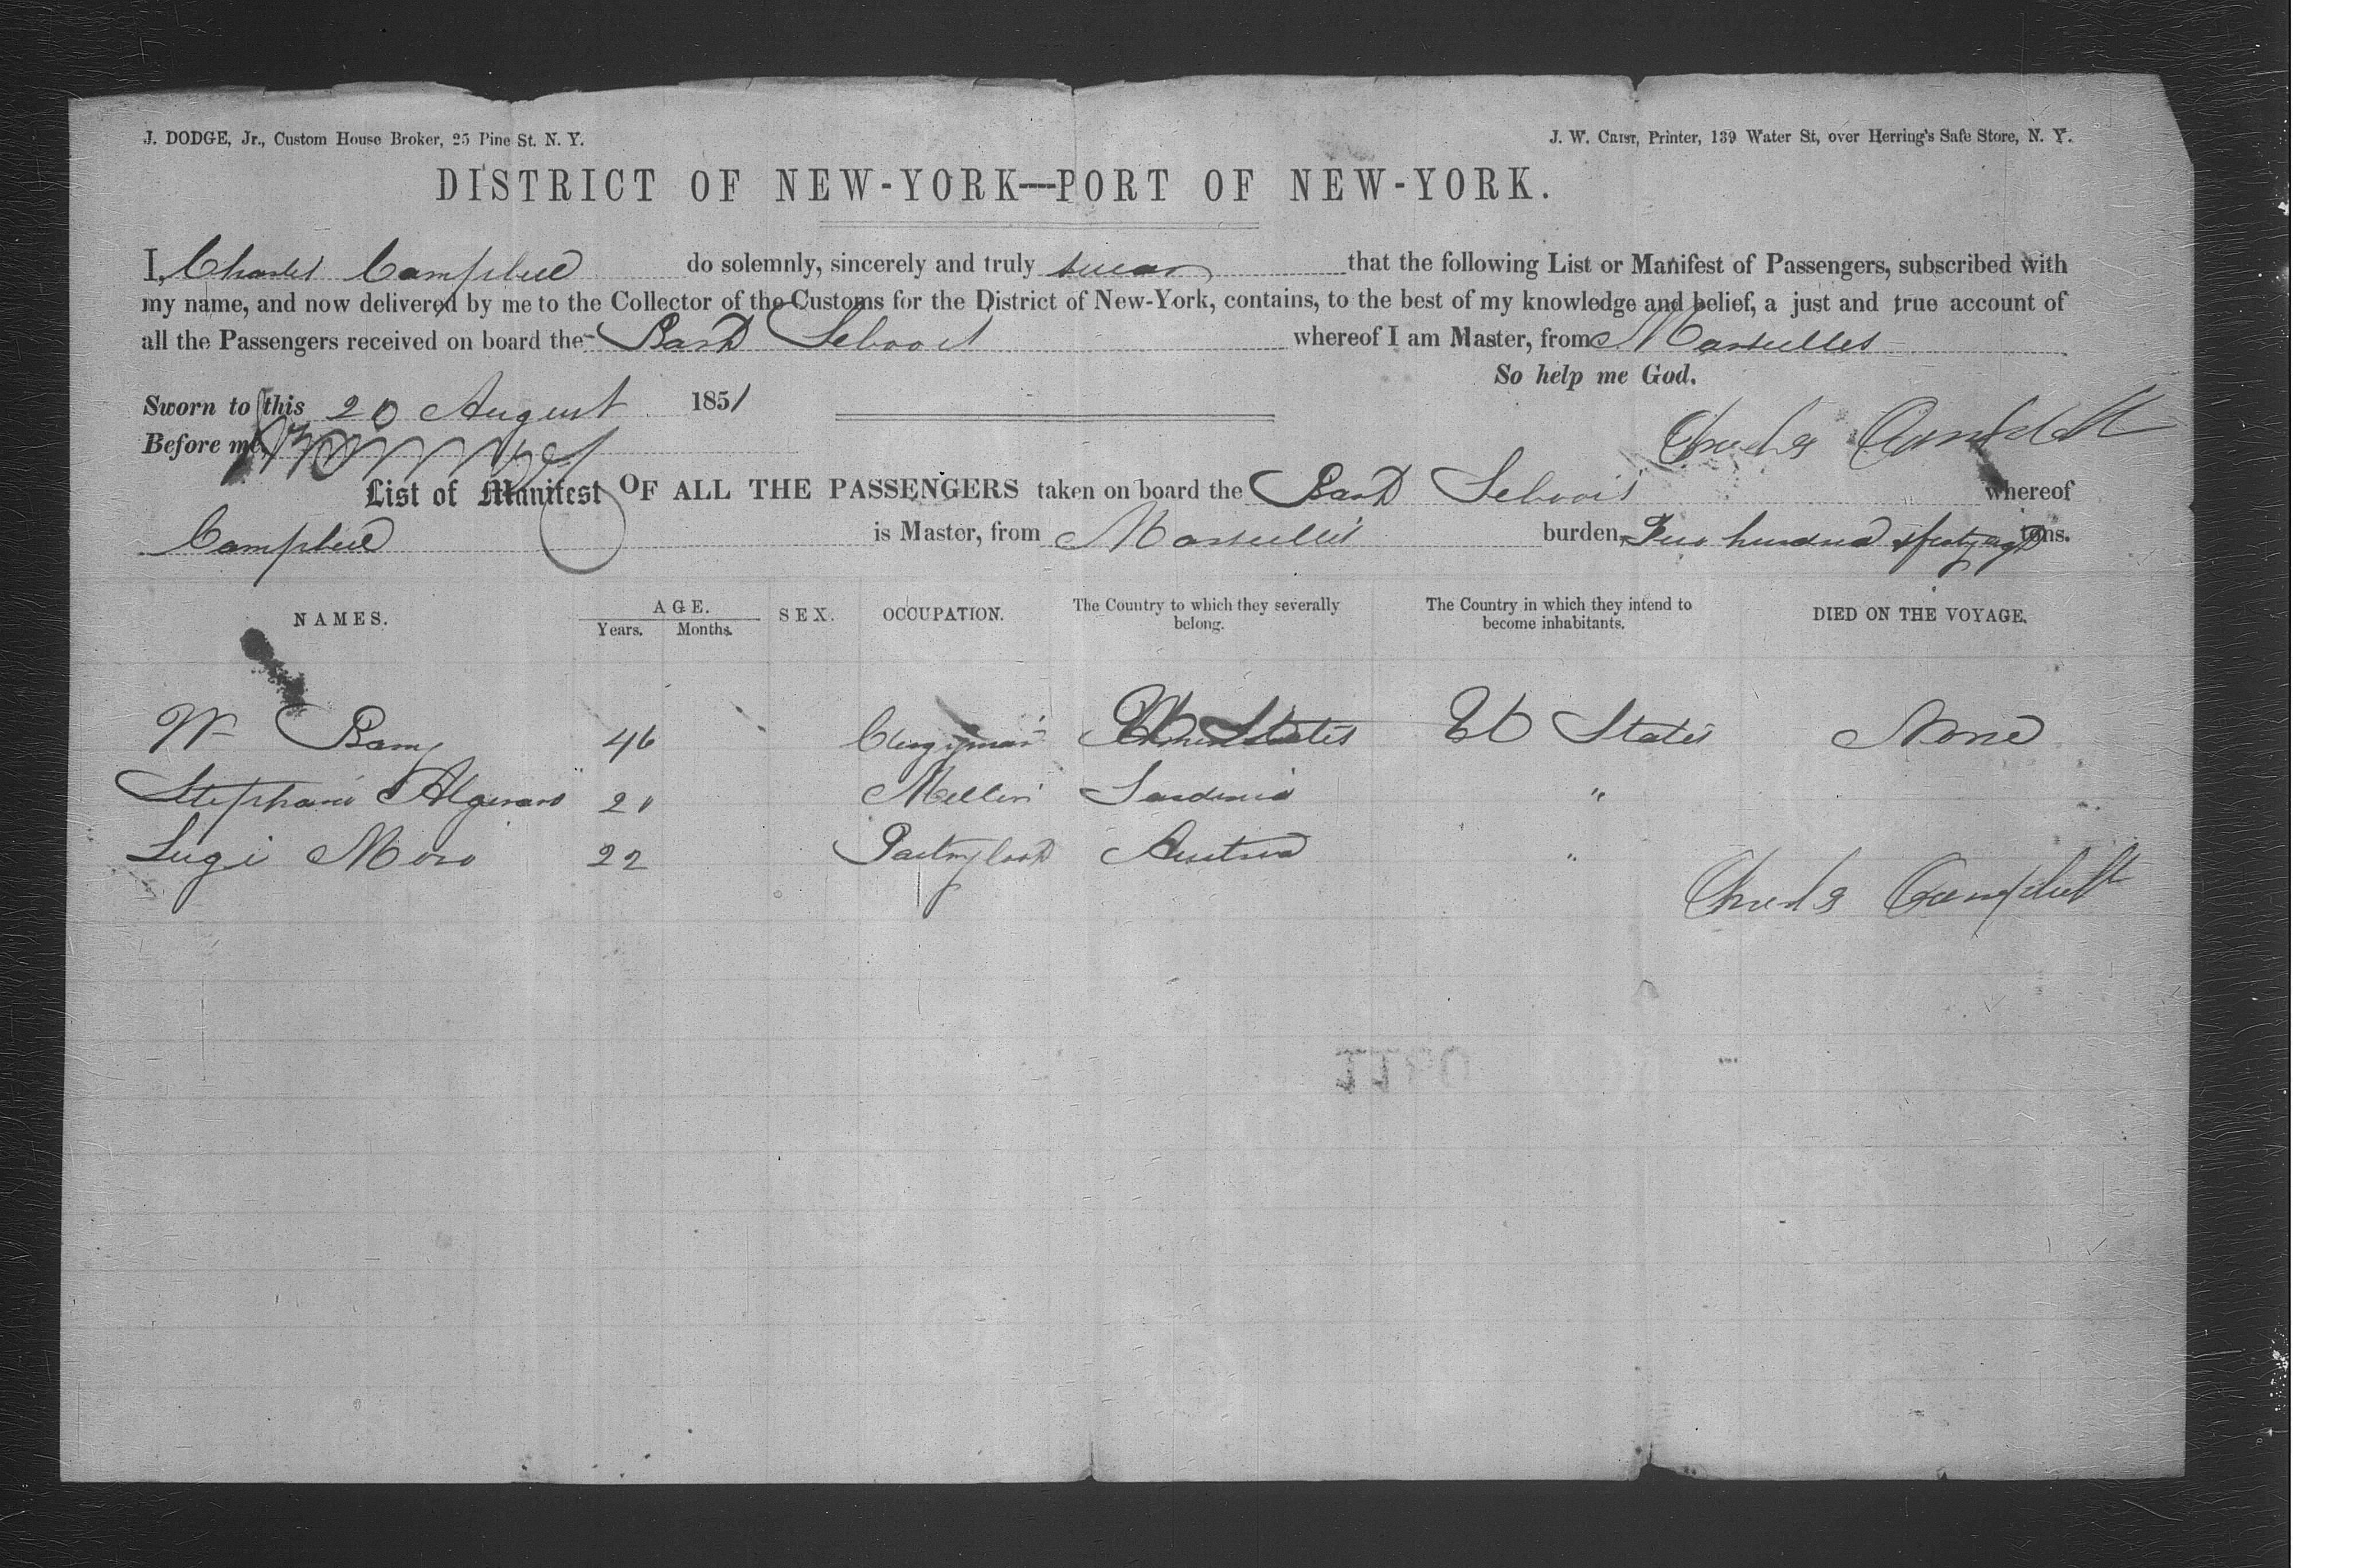 J. DODGE, Jr., Custom House Broker, 25 Pine St. N. Y.
J. W. CRIST, Printer, 139 Water St, over Herring's Safe Store, N. Y.
DISTRICT OF NEW-YORK—PORT OF NEW-YORK.
I, Charles Campbell do solemnly, sincerely and truly swear that the following List or Manifest of Passengers, subscribed with
my name, and now delivered by me to the Collector of the Customs for the District of New-York, contains, to the best of my knowledge and belief, a just and true account of
all the Passengers received on board the Bark whereof I am Master, from Marseilles
So help me God.
Sworn to this 20 August 1851
Before me,
Charles Campbell
List of Manifest OF ALL THE PASSENGERS taken on board the Bark whereof
Campbell is Master, from Marseilles burden, Two hundred tons.
NAMES. AGE. SEX. OCCUPATION. The Country to which they severally belong. The Country in which they intend to become inhabitants. DIED ON THE VOYAGE.
Years. Months.
Wm 46 Clergyman U States U States None
21 Sardinia "
Luigi Moro 22 Austria "
Charles Campbell